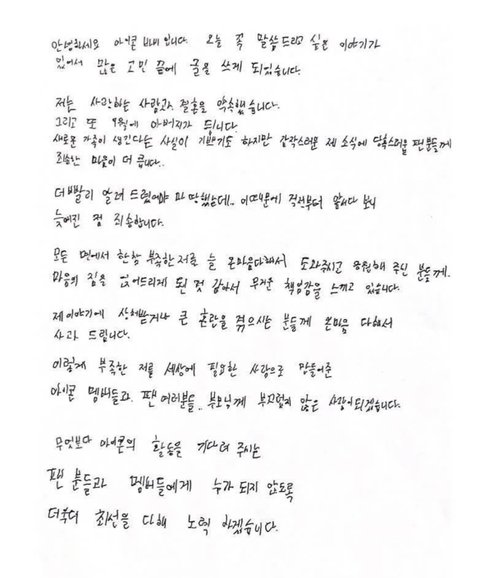 안녕하세요 아이콘 바비입니다. 오늘 꼭 말씀드리고 싶은 이야기가
있어서 많은 고민 끝에 글을 쓰게 되었습니다.
저는 사랑하는 사람과 결혼을 약속했습니다.
그리고 또 9월에 아버지가 됩니다.
새로운 가족이 생긴다는 사실이 기쁘기도 하지만 갑작스러운 제 소식에 당혹스러울 팬분들께
죄송한 마음이 더 큽니다..
더 빨리 알려 드렸어야 마땅했는데.. 걱정부터 앞서다 보니
늦어진 점 죄송합니다.
모든 면에서 한참 부족한 저를 늘 온마음다해서 도와주시고 응원해 주신 분들께.
마음의 짐을 얹어드리게 된 것 같아서 무거운 책임감을 느끼고 있습니다.
제이야기에 상처받거나 큰 혼란을 겪으시는 분들께 온마음 다해서
사과 드립니다.
이렇게 부족한 저를 세상에 필요한 사람으로 만들어준
아이콘 멤버들과 팬 여러분들.. 부모님께 부끄럽지 않은 사람이되겠습니다.
무엇보다 아이콘의 활동을 기다려 주시는
팬 분들과 멤버들에게 누가 되지 않도록
더욱더 최선을 다해 노력 하겠습니다.